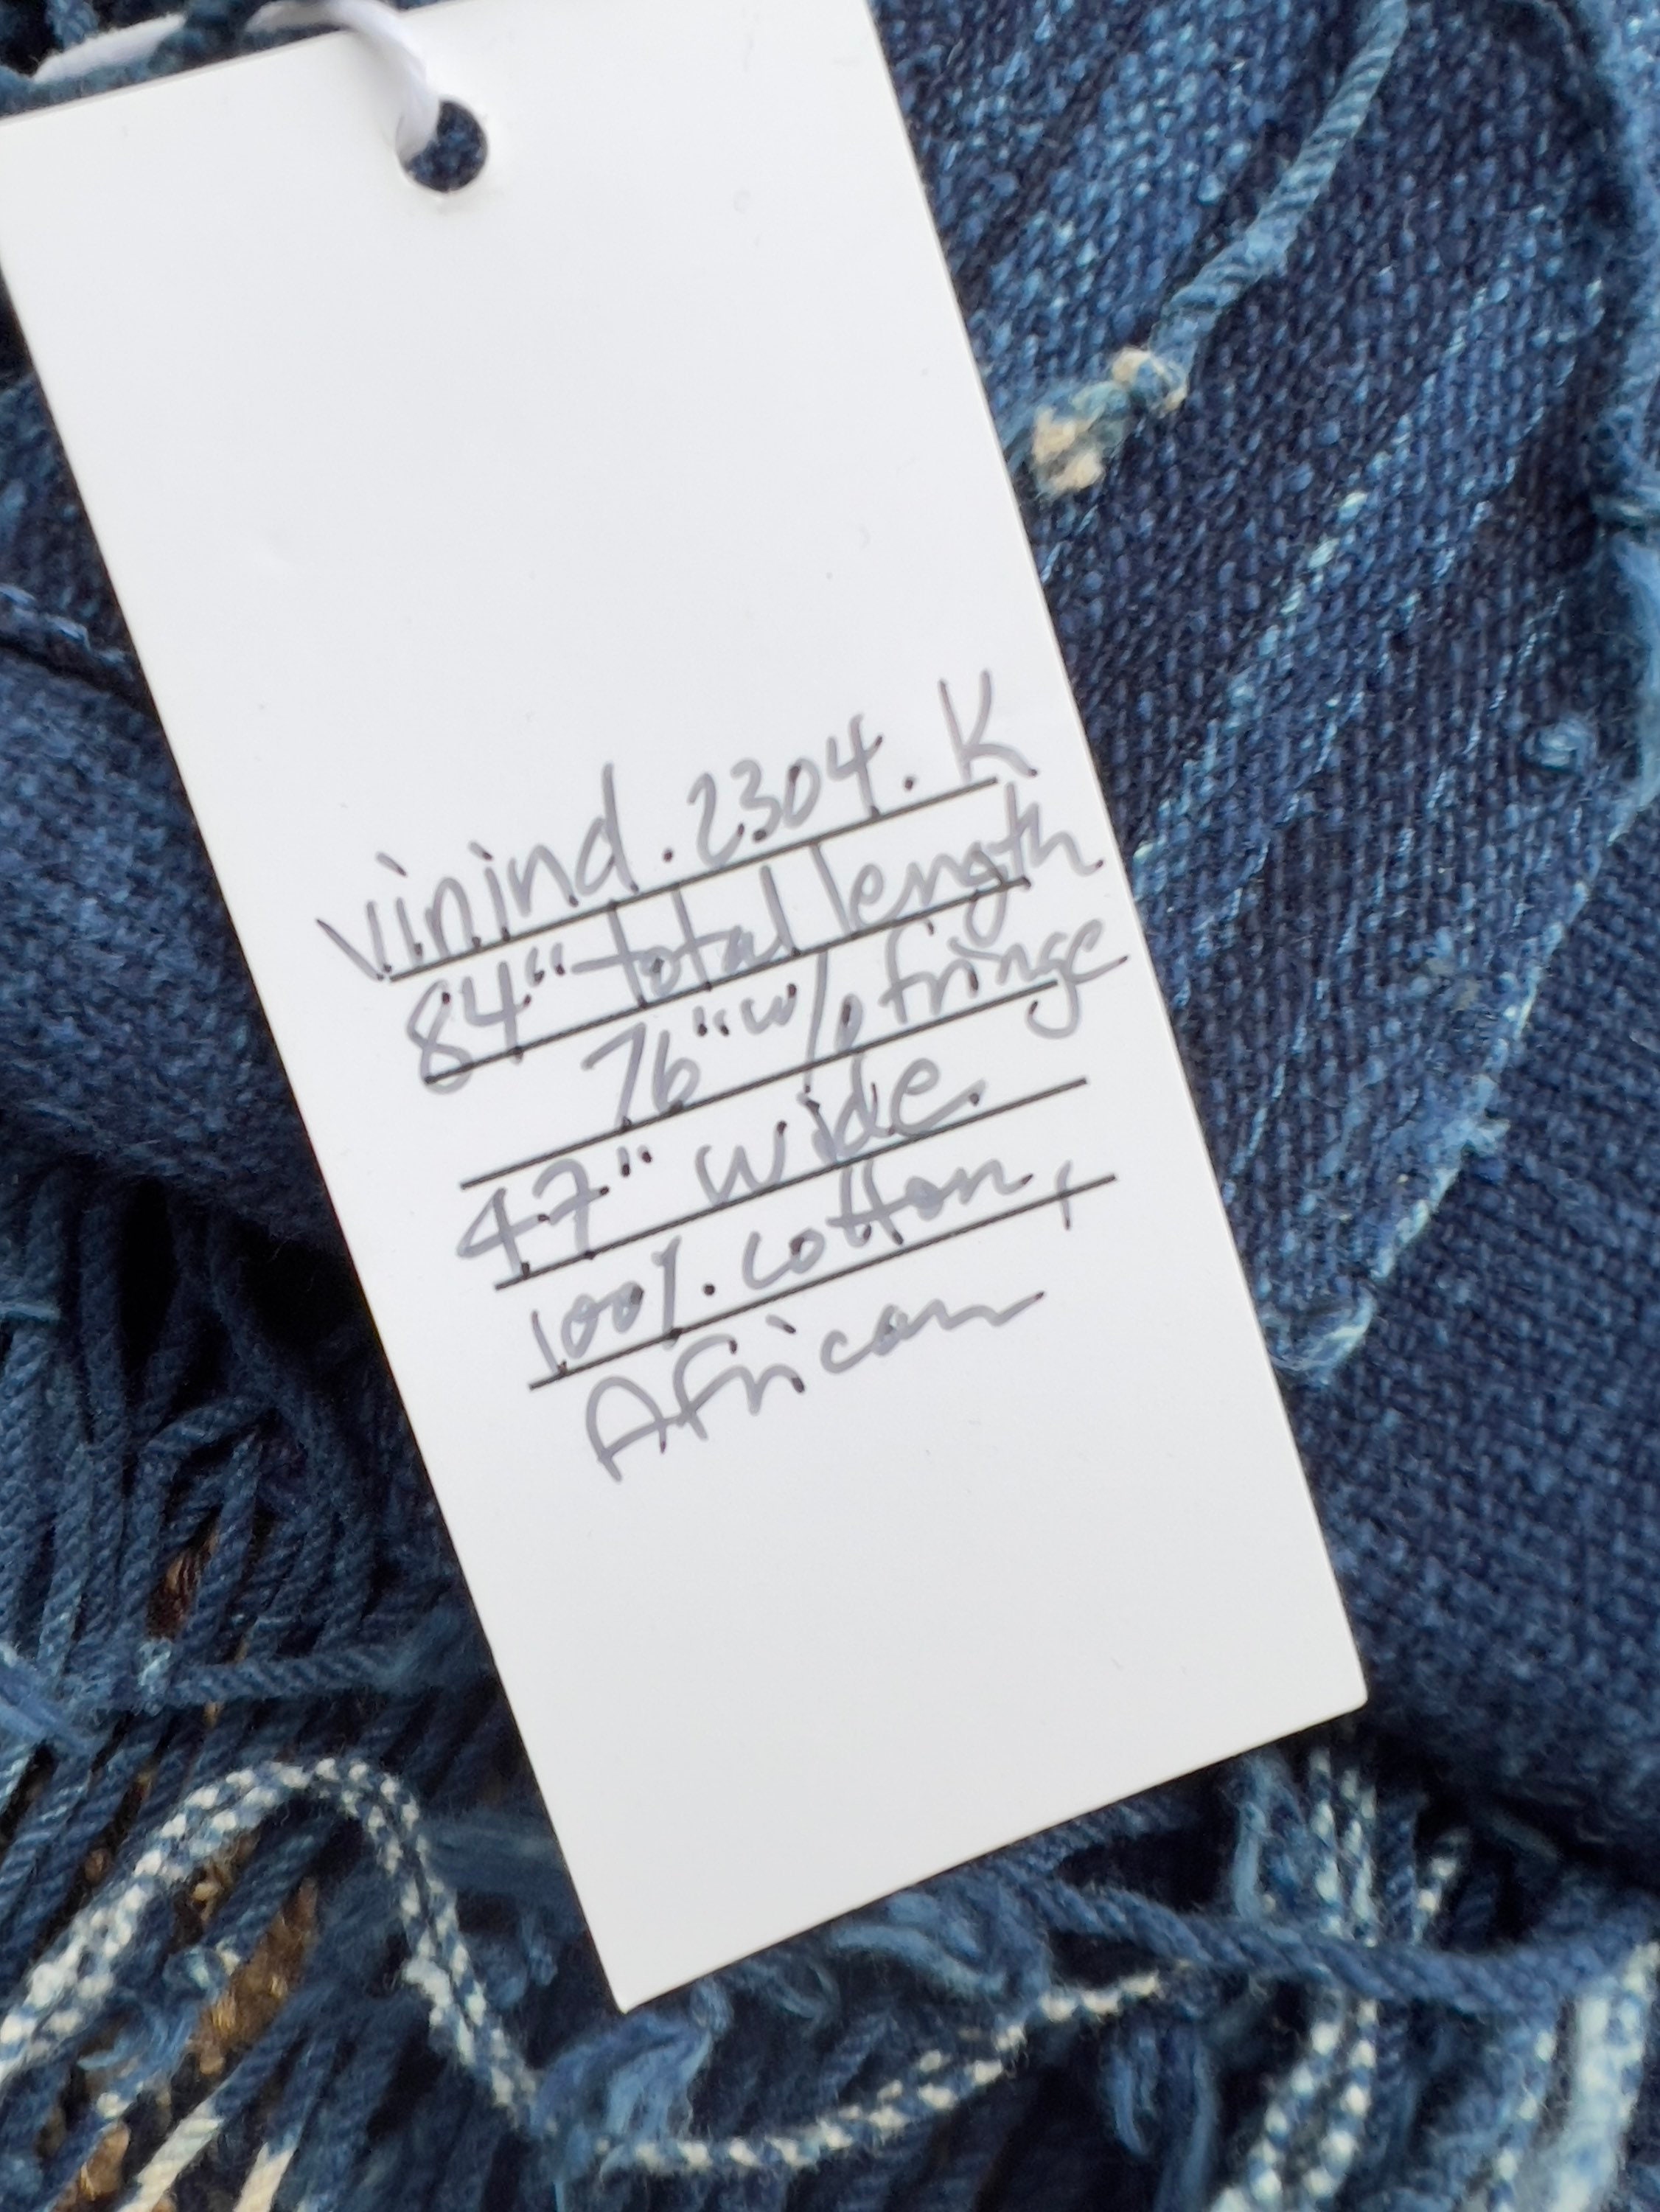 Vinind.2304.K
84" total length
76" w/o fringe
47" wide
100% cotton,
African